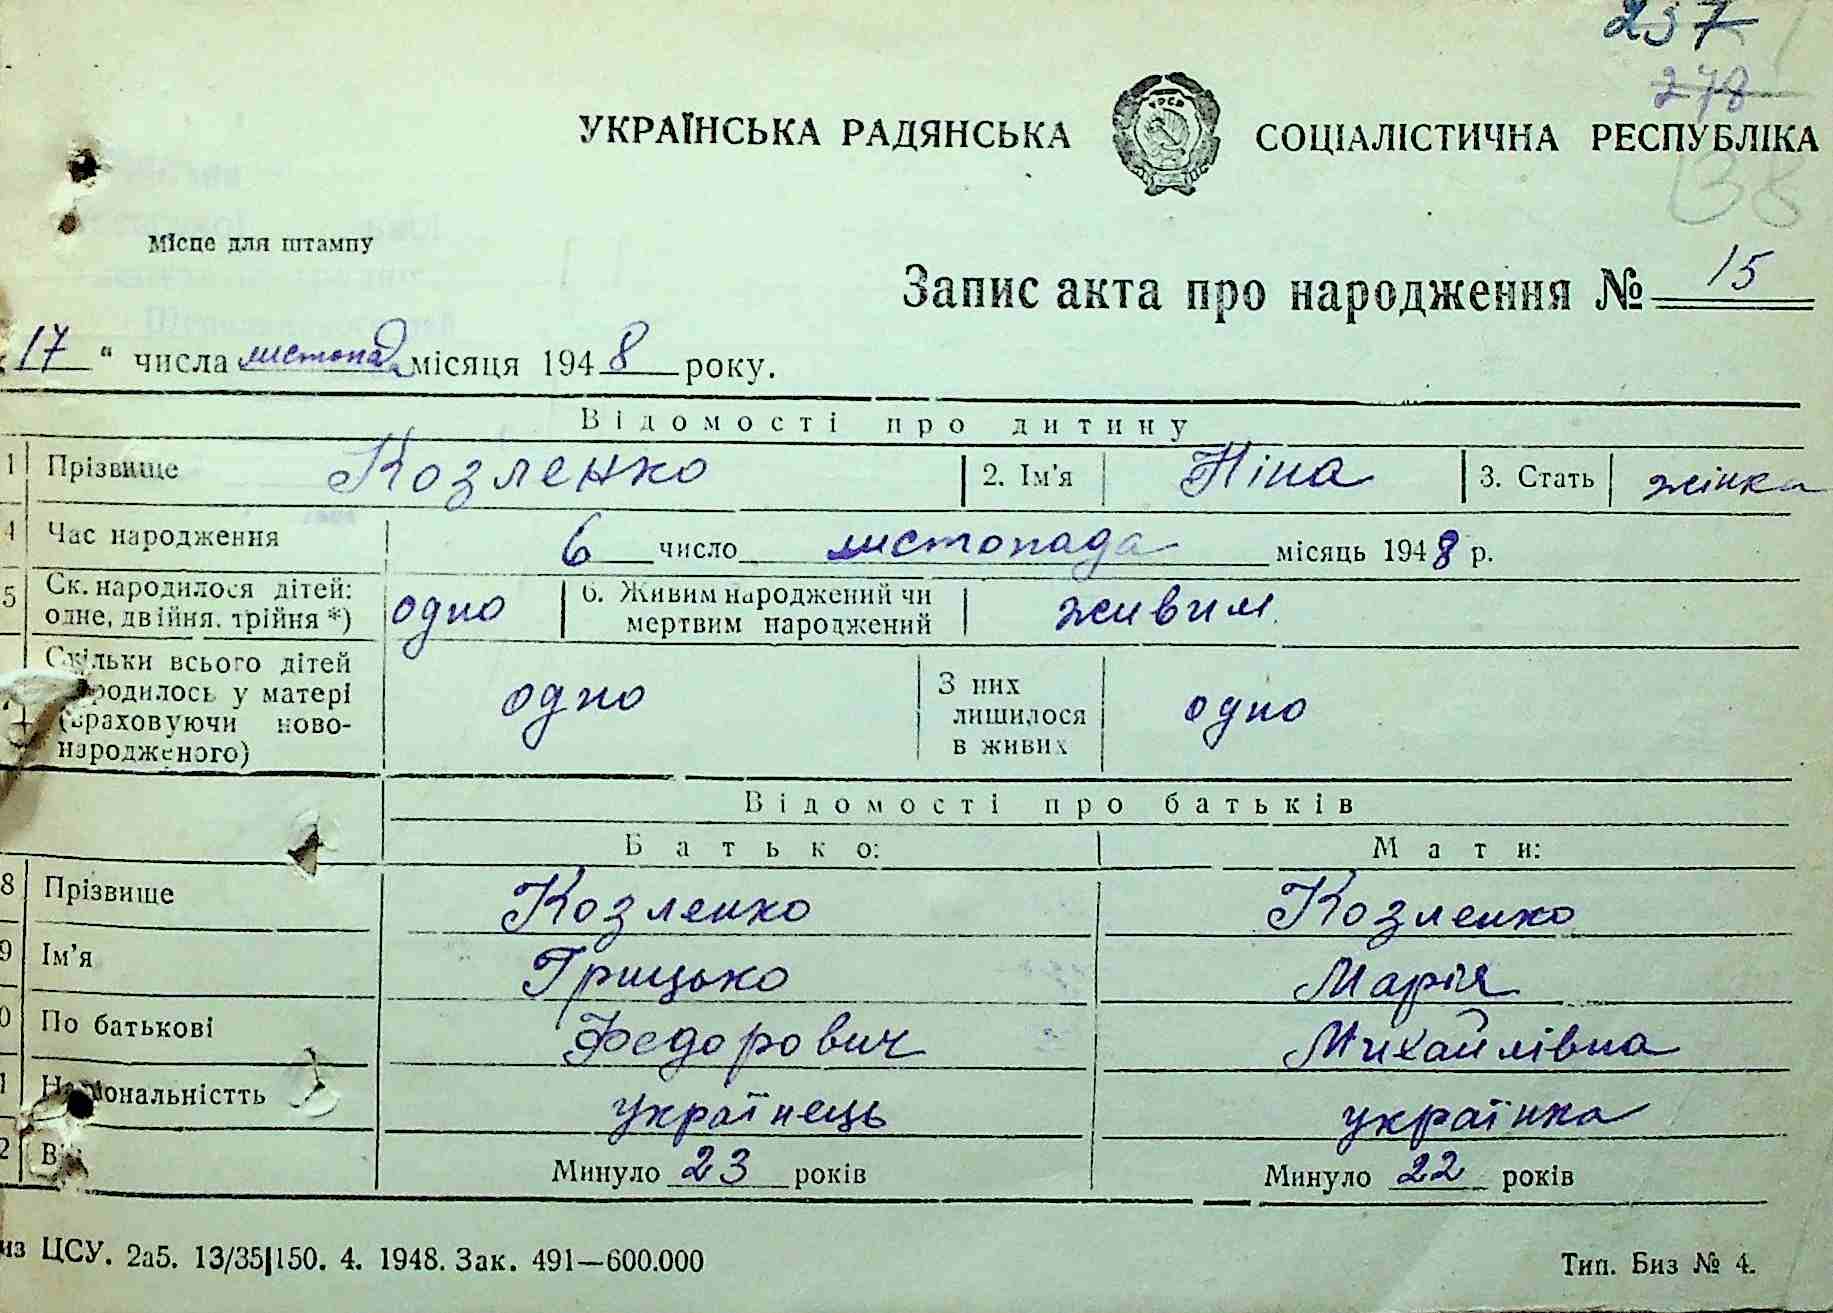 237
278
УКРАЇНСЬКА РАДЯНСЬКА СОЦІАЛІСТИЧНА РЕСПУБЛІКА
38
Місце для штампу
Запис акта про народження № 15
17 " числа листопада місяця 1948 року.
Відомості про дитину
1 Прізвище Козленко 2. Ім'я Ніна 3. Стать жінка
4 Час народження 6 число листопада місяць 1948 р.
5 Ск. народилося дітей: одне, двійня, трійня *) одно 6. Живим народжений чи мертвим народжений живим
Скільки всього дітей народилось у матері (враховуючи ново-народженого) одно З них лишилося в живих одно
Відомості про батьків
Батько: Мати:
8 Прізвище Козленко Козленко
9 Ім'я Грицько Марія
0 По батькові Федорович Михайлівна
1 Національністть українець українка
2 Минуло 23 років Минуло 22 років
из ЦСУ. 2а5. 13/35|150. 4. 1948. Зак. 491—600.000 Тип. Биз № 4.